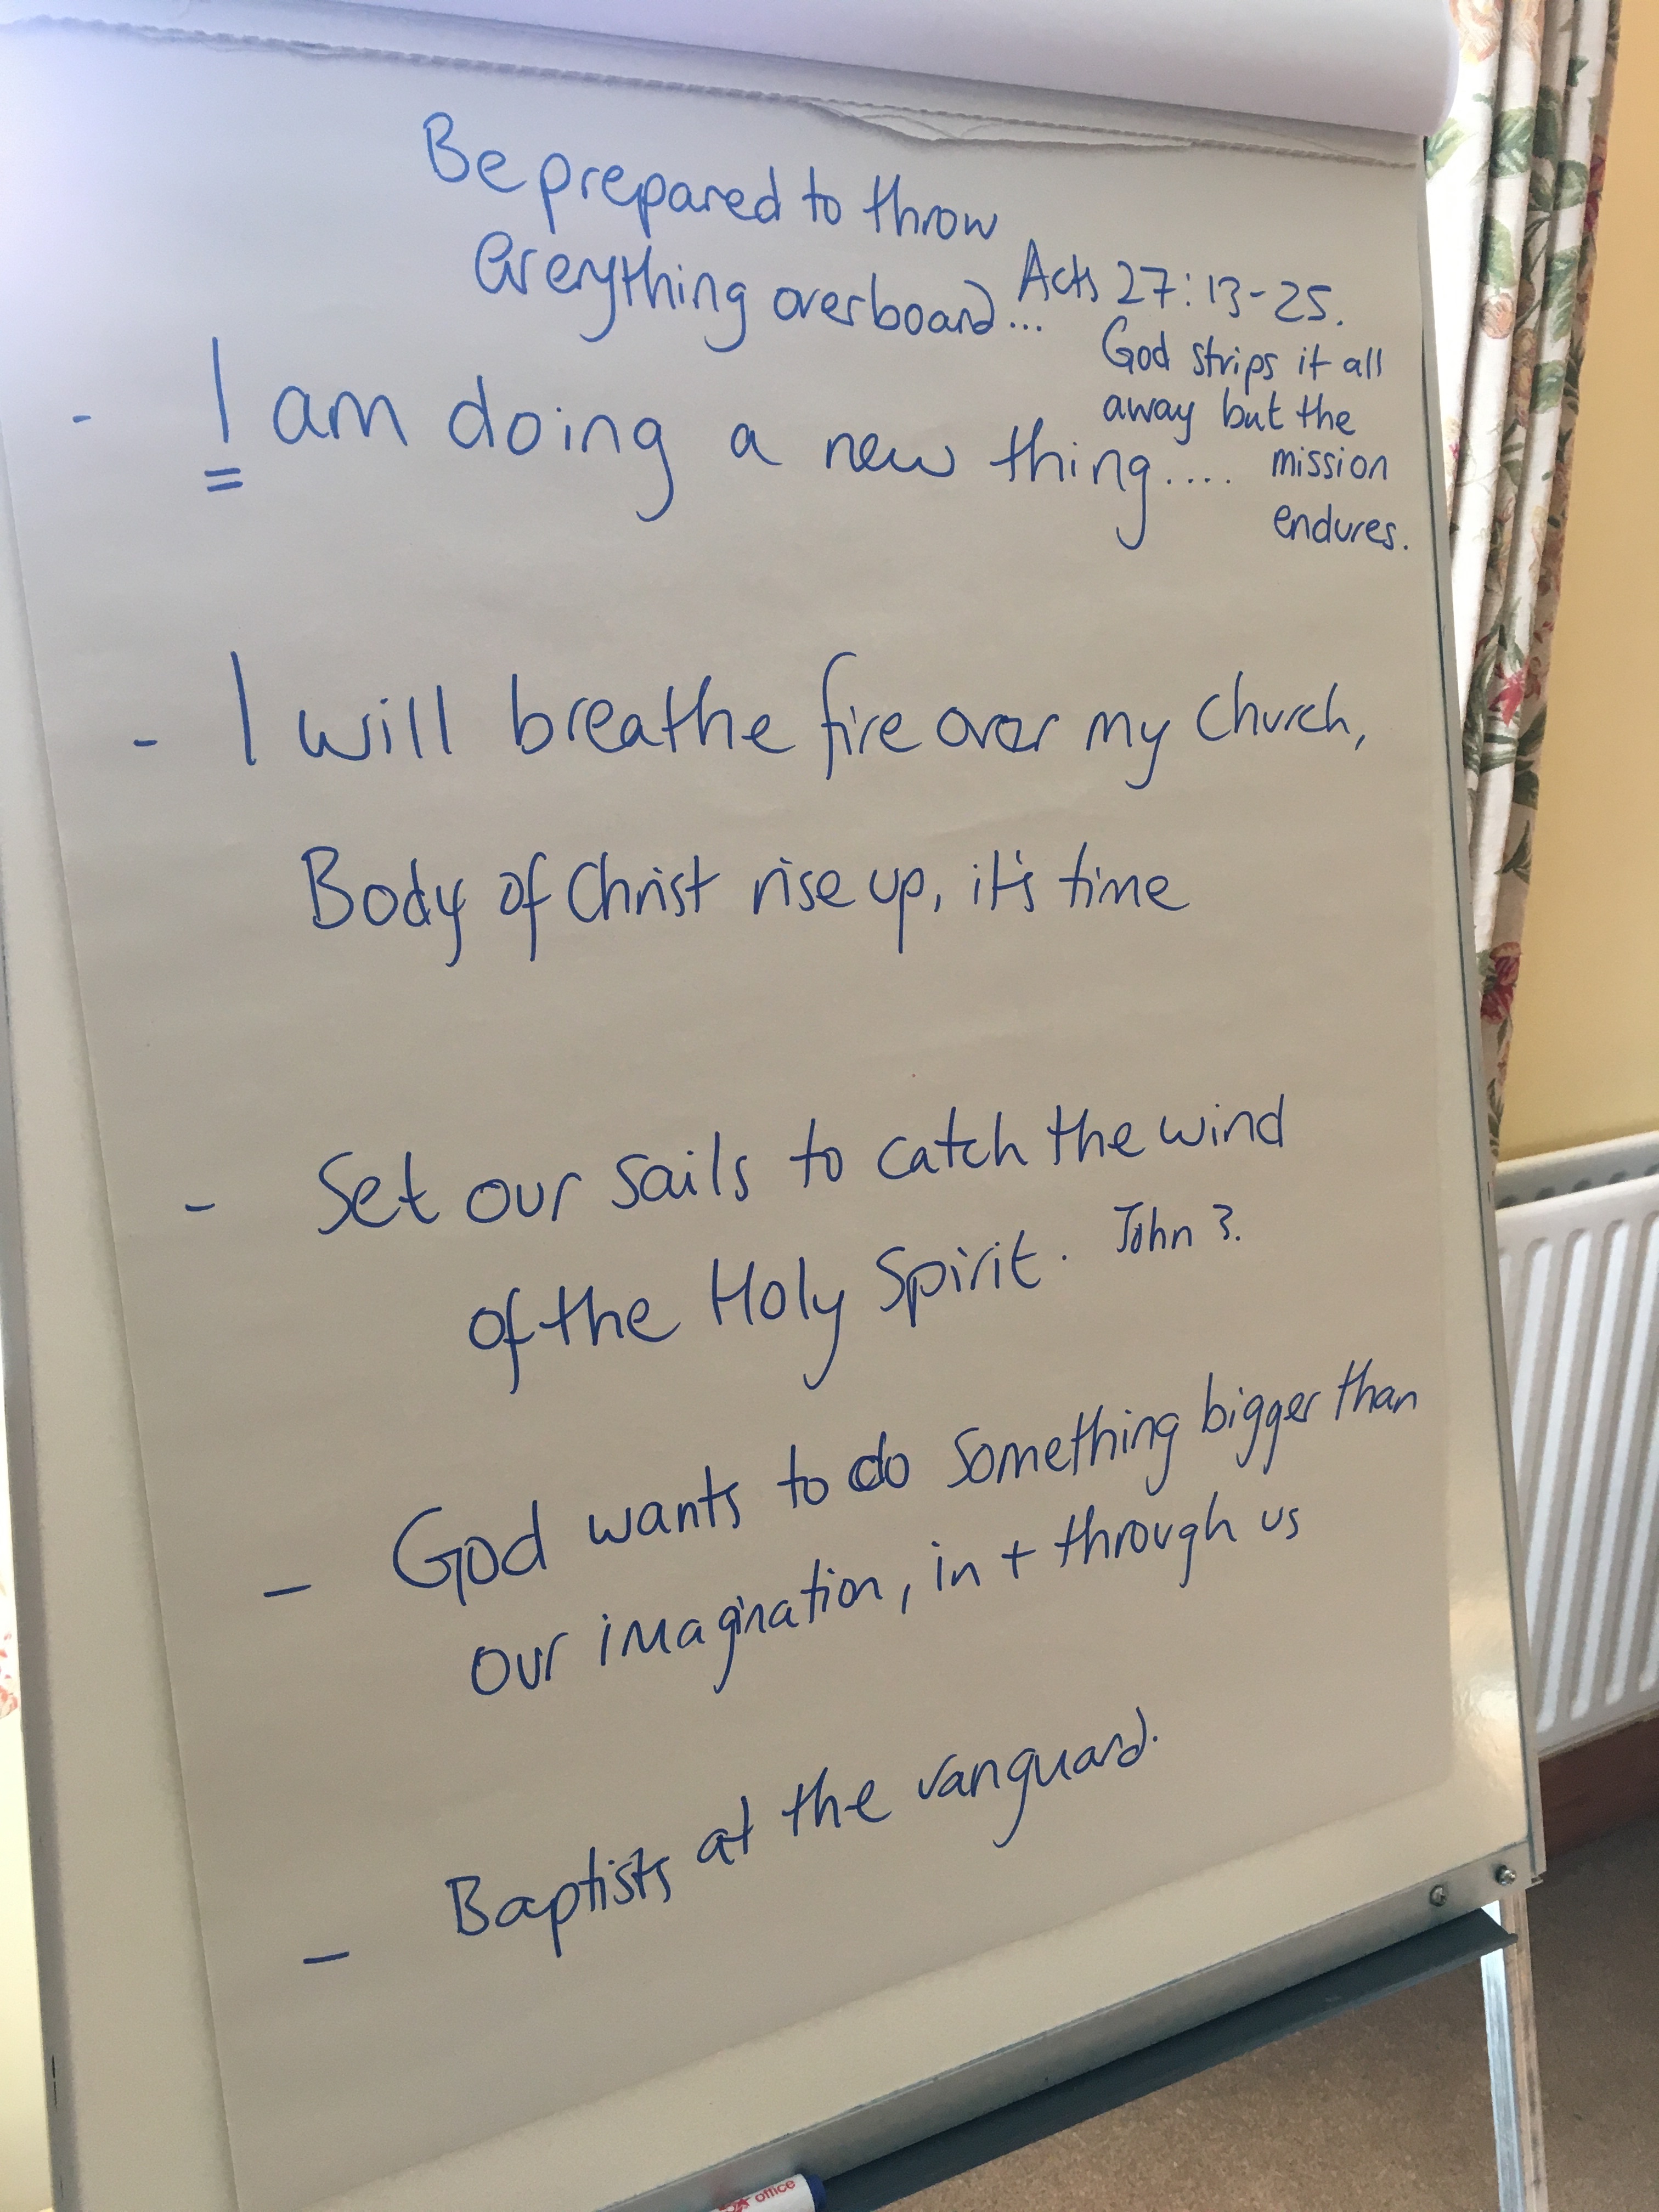 Be prepared to throw
everything overboard... Acts 27:13-25.
God strips it all
away but the
mission
endures.
- I am doing a new thing....
- I will breathe fire over my church,
Body of Christ rise up, it's time
- Set our sails to catch the wind
of the Holy Spirit. John 3.
- God wants to do something bigger than
our imagination, in + through us
- Baptists at the vanguard.
office